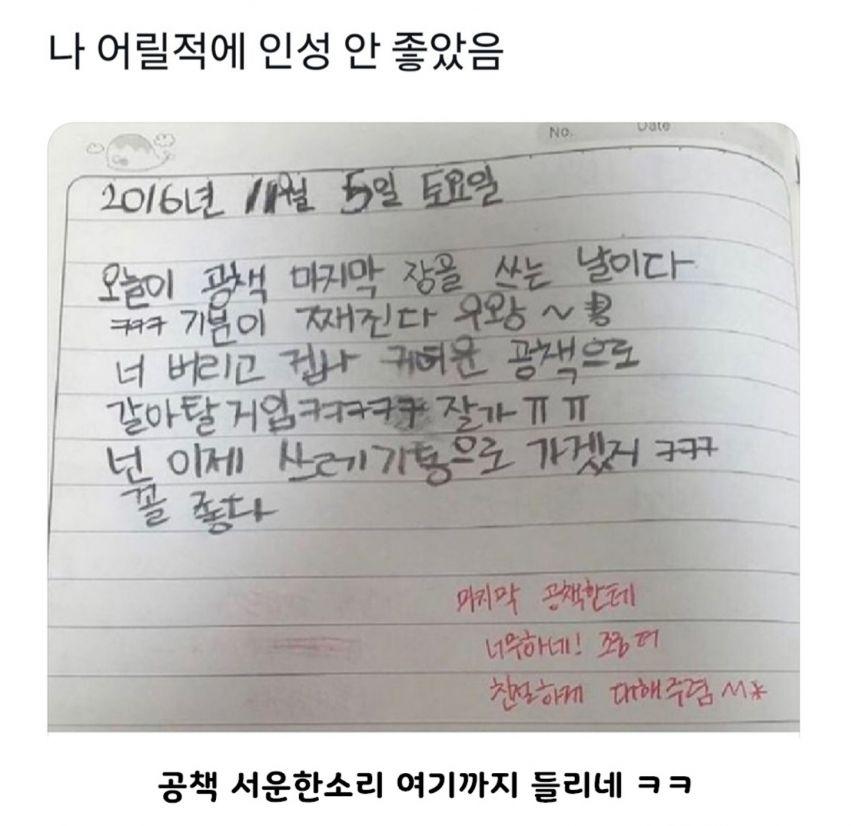 나 어릴적에 인성 안 좋았음
No. Date
2016년 11월 5일 토요일
오늘이 공책 마지막 장을 쓰는 날이다
ㅋㅋㅋ 기분이 째진다 우왕~
너 버리고 겁나 귀여운 공책으로
갈아탈거임ㅋㅋㅋㅋㅋ 잘가ㅠㅠ
넌 이제 쓰레기통으로 가겠지 ㅋㅋㅋ
꼴 좋다
마지막 공책한테
너무하네! 좀 더
친절하게 대해주렴 ^^*
공책 서운한소리 여기까지 들리네 ㅋㅋ